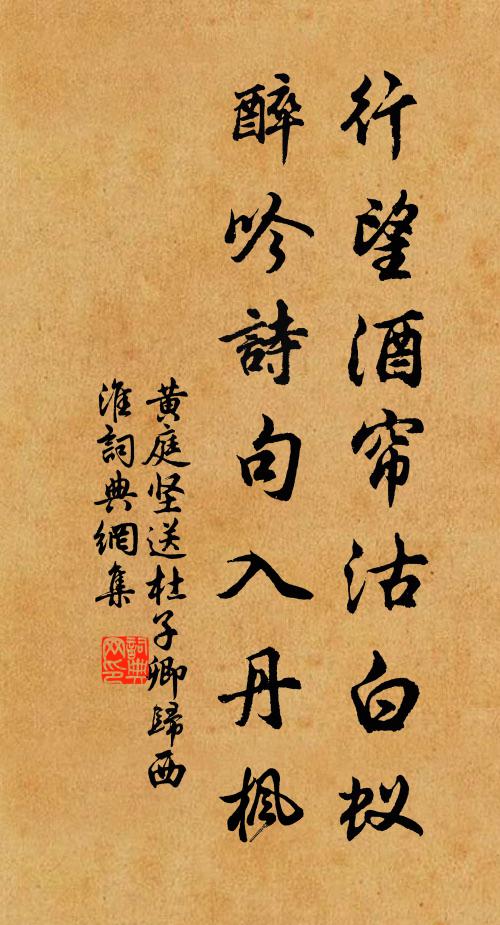 行望酒帘沽白蚁
醉吟詩句入丹楓
黄庭坚送杜子卿歸西
淮詞典網集
詞典网印